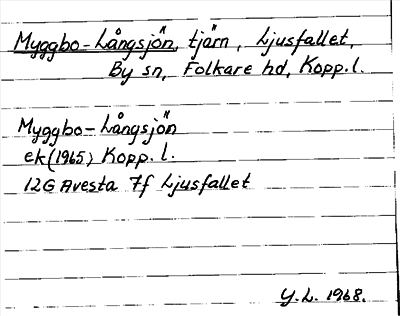 Myggbo-Långsjön, tjärn, Ljusfallet,
By sn, Folkare hd, Kopp.l.
Myggbo-Långsjön
ek(1965) Kopp.l.
12G Avesta 7f Ljusfallet
Y.L. 1968.